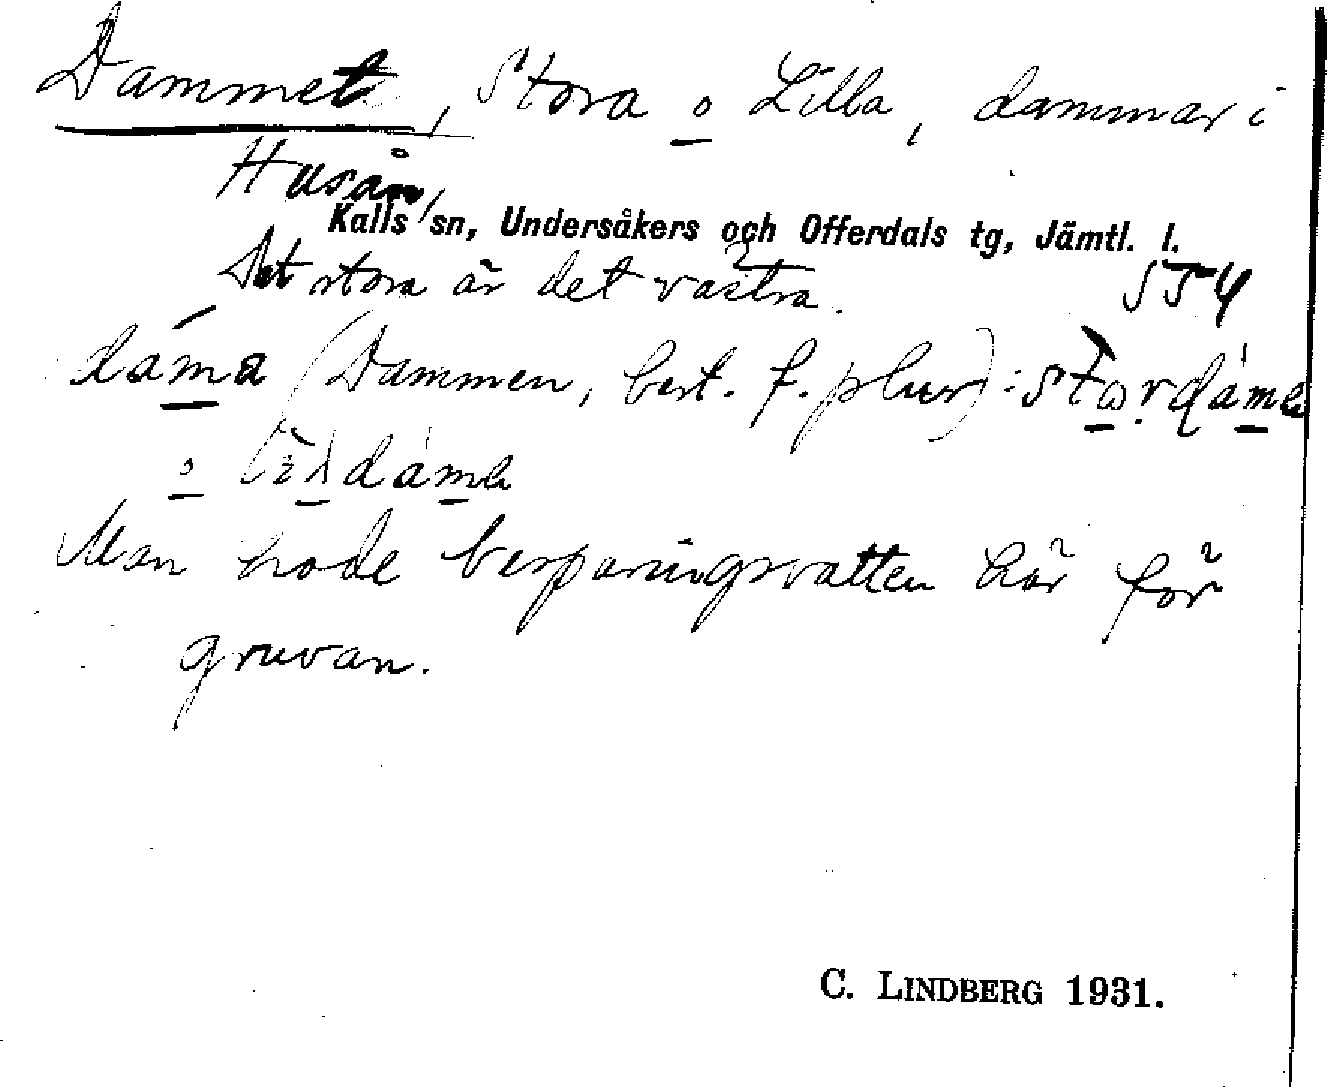 Dammet, Stora o Lilla, dammar i
Husån,
Kalls sn, Undersåkers och Offerdals tg, Jämtl. l.
Det stora är det västra. 554
dáma (Dammen, best. f. plur):
o
Man hade besparingsvatten här för
gruvan.
C. LINDBERG 1931.